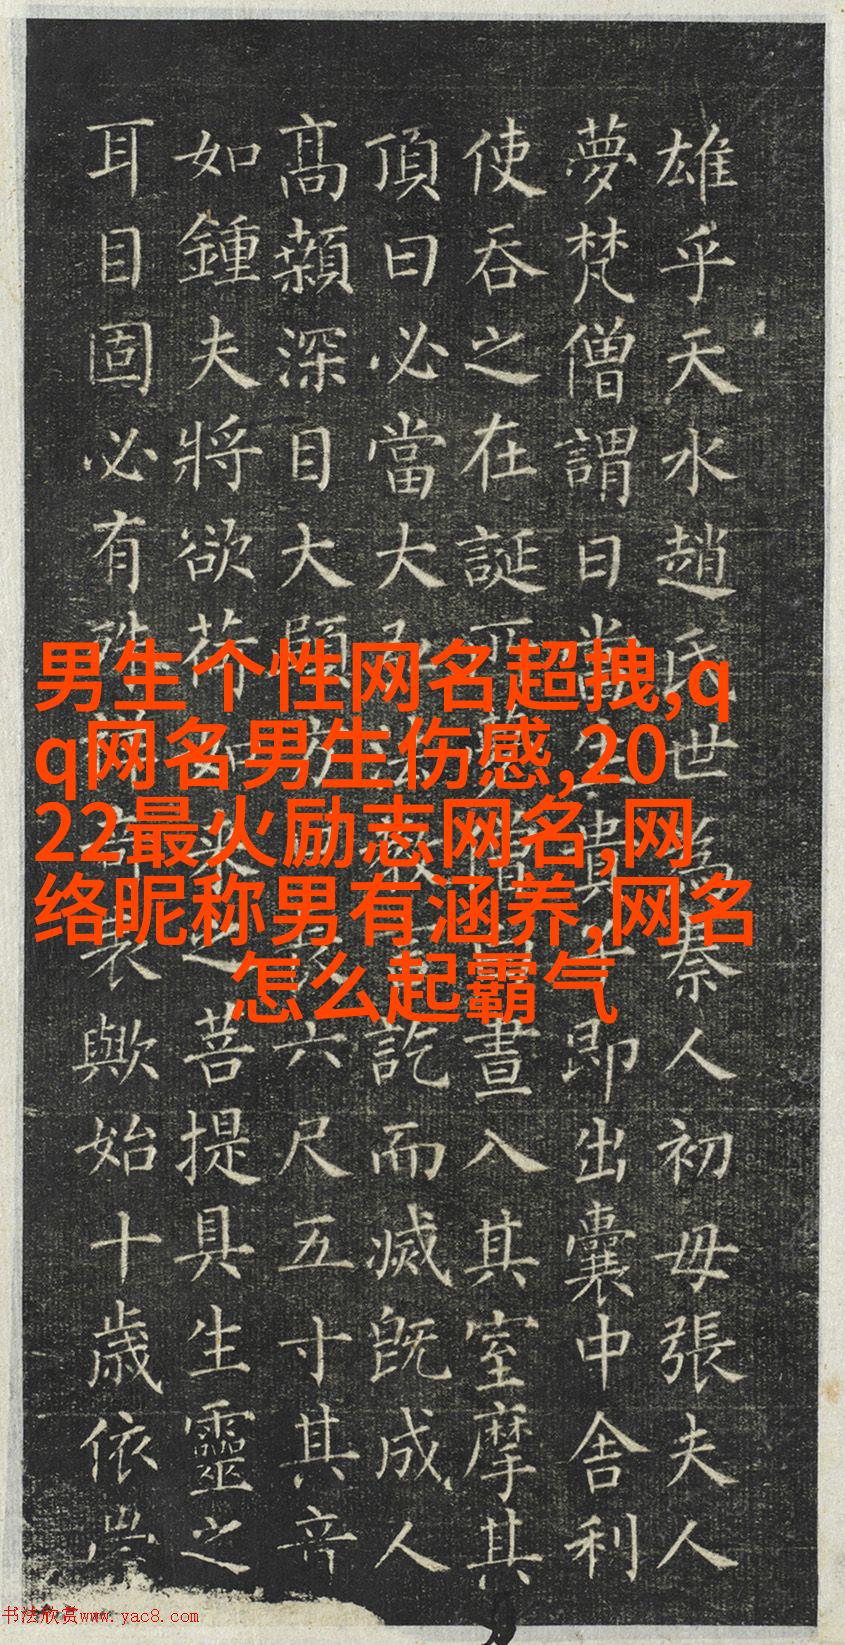 雄乎天水趙氏世為秦人初母張夫人
夢梵僧謂曰當生貴即出囊中舍利
使吞之在誕所夢僧晝入其室摩其
頂曰必當大弘法教訖而滅既成人
高顙深目大頤方六尺五寸其音
如鍾夫將欲荷如來之菩提具生靈之
耳目固必有殊表歟始十歲依
男生个性网名超拽,q
q网名男生伤感,20
22最火励志网名,网
络昵称男有涵养,网名
怎么起霸气
书法欣赏www.yac8.com